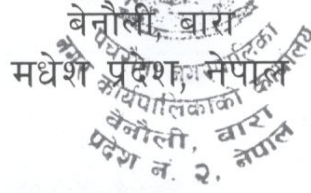 बेनौली, बारा
मधेश प्रदेश, नेपाल
नगर कार्यपालिकाको कार्यालय
बेनौली, बारा
प्रदेश नं. २, नेपाल